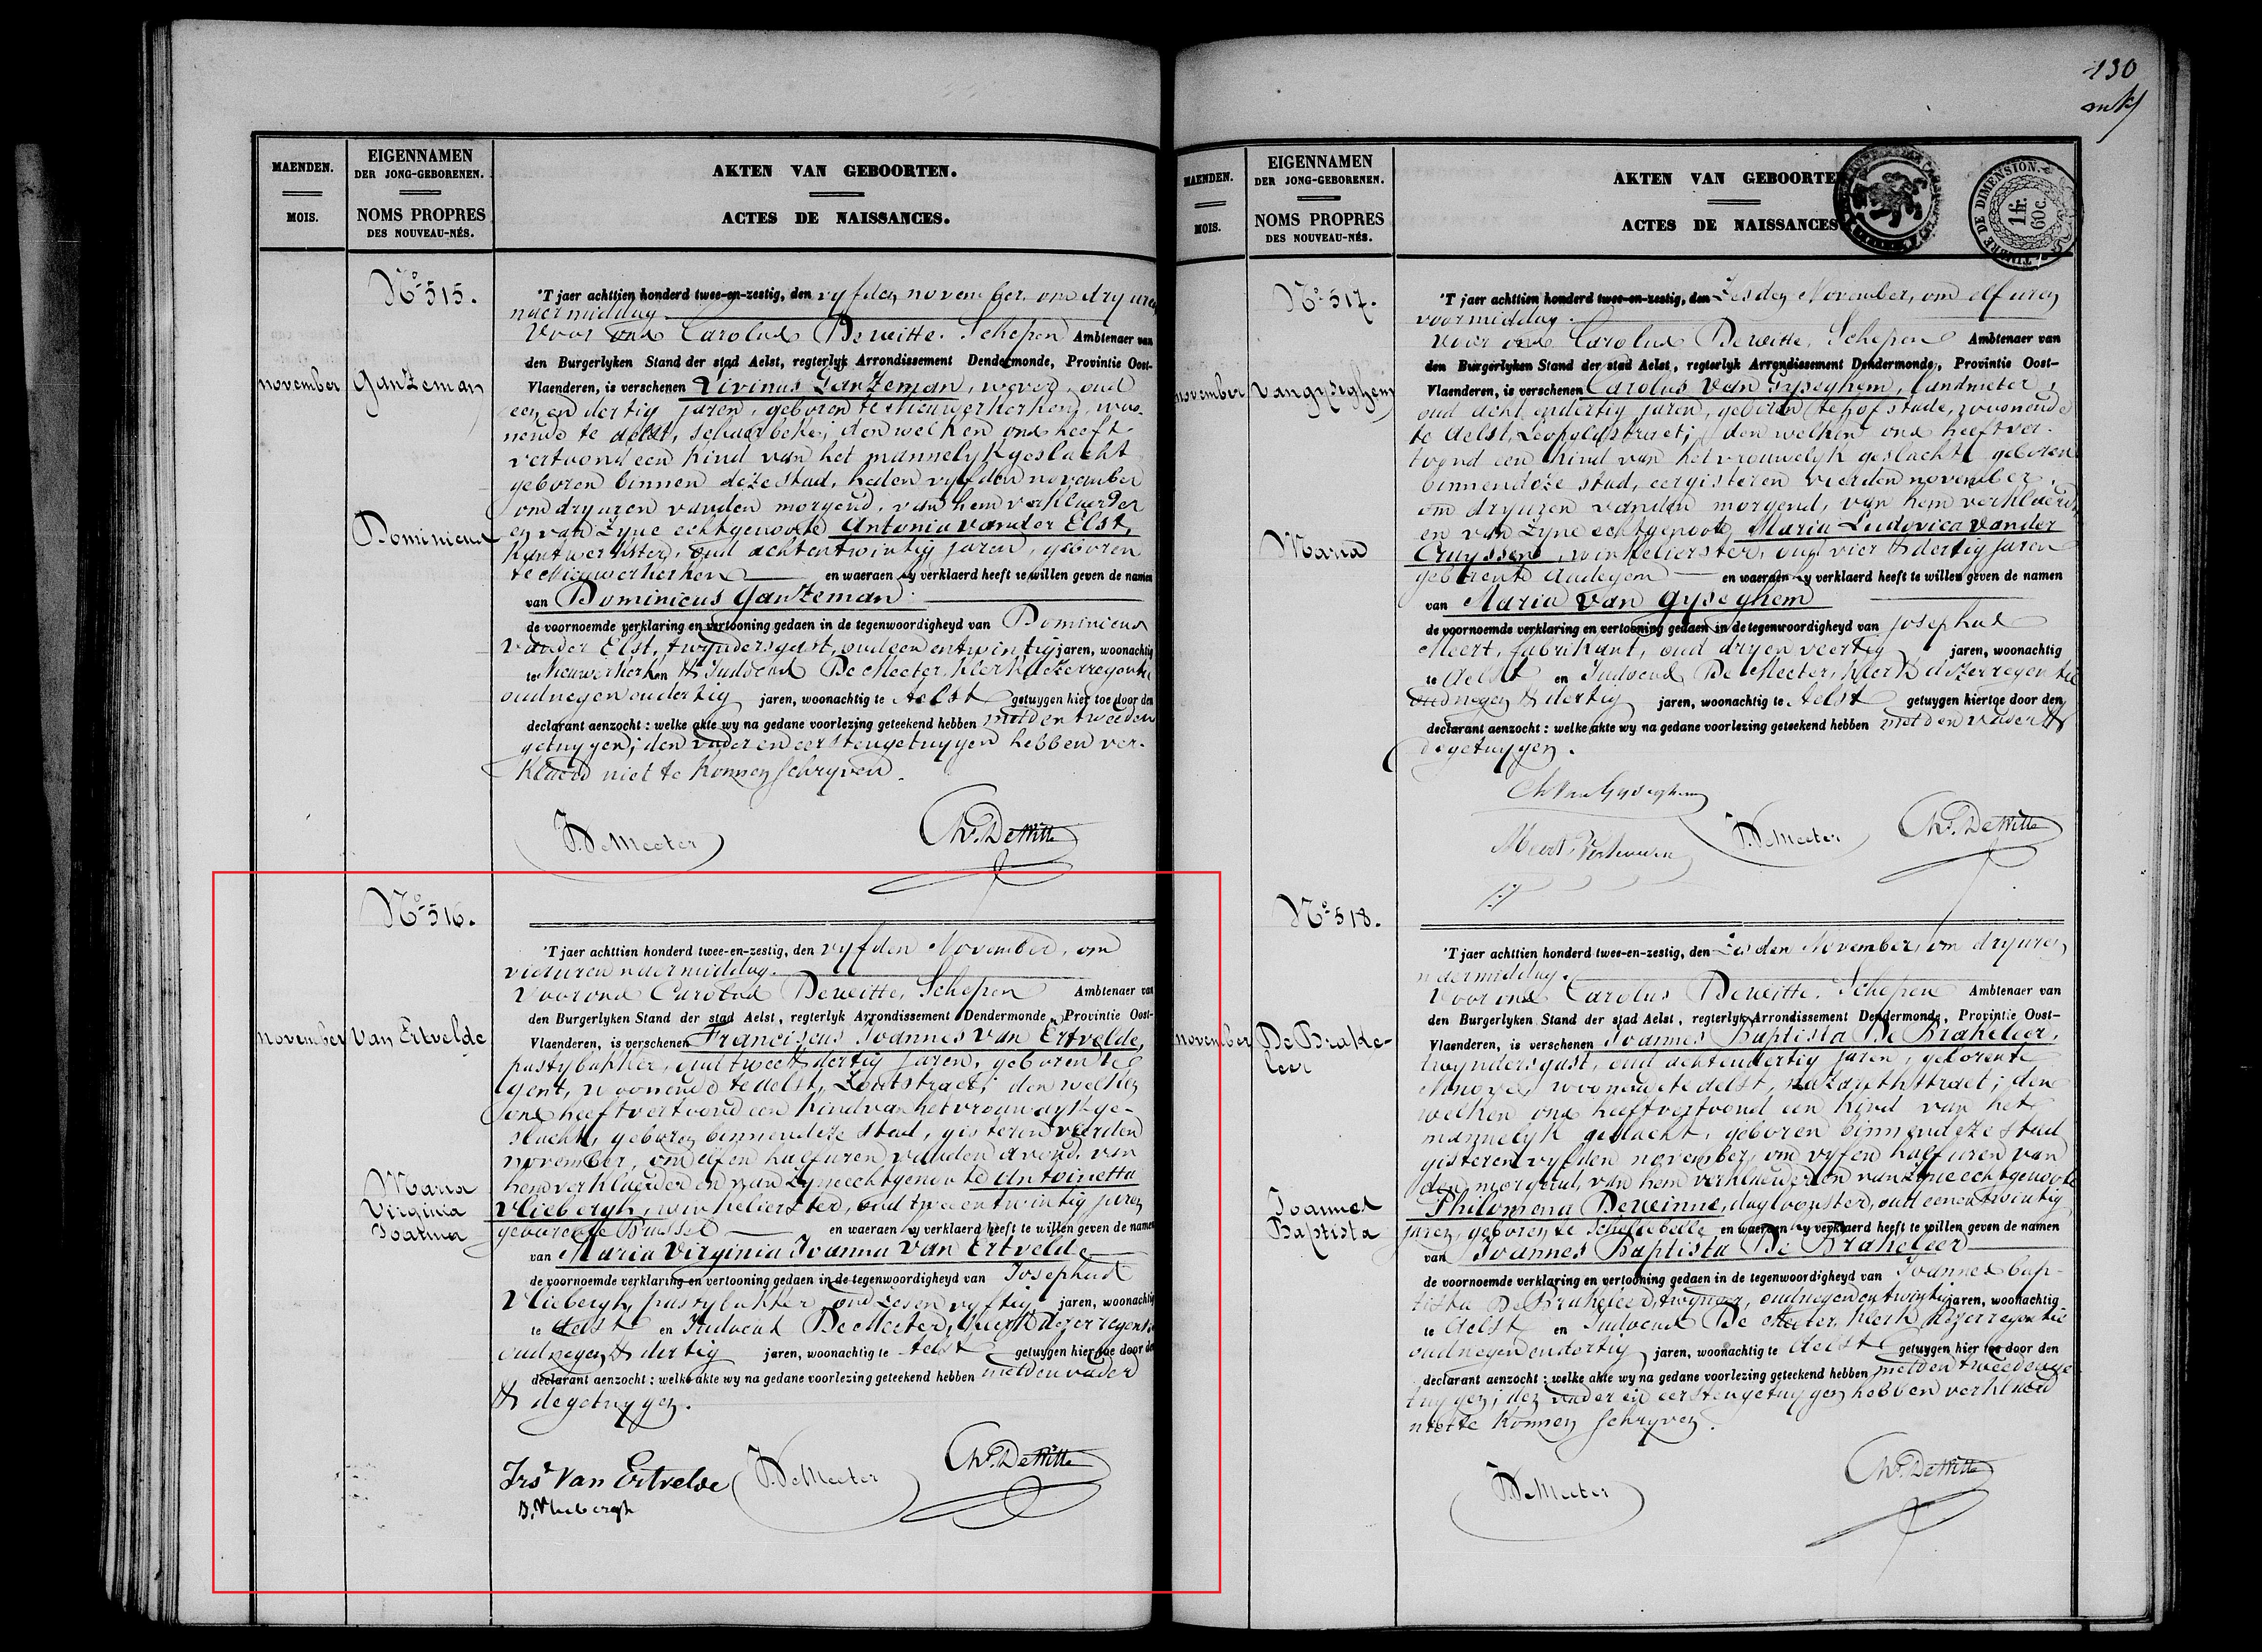 130
MAENDEN.
MOIS.
EIGENNAMEN
DER JONG-GEBORENEN.
NOMS PROPRES
DES NOUVEAU-NÉS.
AKTEN VAN GEBOORTEN.
ACTES DE NAISSANCES.
No 515.
november
Ganzeman
Dominicus
'T jaer achttien honderd twee-en-zestig, den vyfden november om dry uren
naermiddag.
Voor ons Carolus Dewitte, Schepen Ambtenaer van
den Burgerlyken Stand der stad Aelst, regterlyk Arrondissement Dendermonde, Provintie Oost-
Vlaenderen, is verschenen Livinus Ganzeman, wever, oud
een en dertig jaren, geboren te Nieuwerkerken, woo-
nende te Aelst, Schaerbeke; den welken ons heeft
vertoond een kind van het mannelyk geslacht
geboren binnen deze stad, heden vyfden november
om dry uren van den morgend, van hem verklaerder
en van zyne echtgenoote Antonia Vander Elst,
kantwerkster, oud acht en twintig jaren, geboren
te Nieuwerkerken en waeraen hy verklaerd heeft te willen geven de namen
van Dominicus Ganzeman.
de voornoemde verklaring en vertooning gedaen in de tegenwoordigheyd van Dominicus
Vander Elst, twyndersgast, oud een en twintig jaren, woonachtig
te Nieuwerkerken & Judocus De Meeter, klerk dezer regentie
oud negen en dertig jaren, woonachtig te Aelst getuygen hier toe door den
declarant aenzocht : welke akte wy na gedane voorlezing geteekend hebben met den tweeden
getuygen; den vader en eersten getuygen hebben ver-
klaerd niet te konnen schryven.
J. De Meeter
Chs. DeWitte
No 516.
november
Van Ertvelde
Maria
Virginia
Joanna
'T jaer achttien honderd twee-en-zestig, den vyfden November, om
vier uren naermiddag.
Voor ons Carolus Dewitte, Schepen Ambtenaer van
den Burgerlyken Stand der stad Aelst, regterlyk Arrondissement Dendermonde, Provintie Oost-
Vlaenderen, is verschenen Franciscus Joannes Van Ertvelde,
pastybakker, oud twee & dertig jaren, geboren te
Gent, woonende te Aelst, Zoutstraet; den welken
ons heeft vertoond een kind van het vrouwelyk ge-
slacht, geboren binnen deze stad, gisteren vierden
november, om elf en half uren van den avond, van
hem verklaerder en van zyne echtgenoote Antoinetta
Vliebergh, winkelierster, oud twee en twintig jaren
geboren te Brussel en waeraen hy verklaerd heeft te willen geven de namen
van Maria Virginia Joanna Van Ertvelde
de voornoemde verklaring en vertooning gedaen in de tegenwoordigheyd van Josephus
Vliebergh, pastybakker, oud zes en vyftig jaren, woonachtig
te Aelst en Judocus De Meeter, klerk dezer regentie
oud negen & dertig jaren, woonachtig te Aelst getuygen hier toe door den
declarant aenzocht : welke akte wy na gedane voorlezing geteekend hebben met den vader
& de getuygen.
Frs Van Ertvelde
J. De Meeter
Chs. DeWitte
Vliebergh
MAENDEN.
MOIS.
EIGENNAMEN
DER JONG-GEBORENEN.
NOMS PROPRES
DES NOUVEAU-NÉS.
AKTEN VAN GEBOORTE
ACTES DE NAISSANCES
TIMBRE DE DIMENSION.
1 fr.
60c.
No 517.
november
Van Gyseghem
Maria
'T jaer achttien honderd twee-en-zestig, den Zesden November, om elf uren
voormiddag.
Voor ons Carolus Dewitte, Schepen Ambtenaer van
den Burgerlyken Stand der stad Aelst, regterlyk Arrondissement Dendermonde, Provintie Oost-
Vlaenderen, is verschenen Carolus Van Gyseghem, Landmeter,
oud acht en dertig jaren, geboren te Hofstade, woonende
te Aelst, Leopoldstraet; den welken ons heeft ver-
toond een kind van het vrouwelyk geslacht geboren
binnen deze stad, eergisteren vierden november,
om dry uren van den morgend, van hem verklaerder
en van zyne echtgenoote Maria Ludovica Vander
Cruyssen, winkelierster, oud vier & dertig jaren
geboren te Audegem en waeraen hy verklaerd heeft te willen geven de namen
van Maria Van Gyseghem
de voornoemde verklaring en vertooning gedaen in de tegenwoordigheyd van Josephus
Meert, fabrikant, oud dry en veertig jaren, woonachtig
te Aelst en Judocus De Meeter, klerk dezer regentie
oud negen & dertig jaren, woonachtig te Aelst getuygen hiertoe door den
declarant aenzocht : welke akte wy na gedane voorlezing geteekend hebben met den vader &
de getuygen.
Ch Van Gyseghem
Meert
J. De Meeter
Chs. DeWitte
No 518.
november
De Brake-
leer
Joannes
Baptista
'T jaer achttien honderd twee-en-zestig, den Zesden November, om dry uren
naermiddag.
Voor ons Carolus Dewitte, Schepen Ambtenaer van
den Burgerlyken Stand der stad Aelst, regterlyk Arrondissement Dendermonde, Provintie Oost-
Vlaenderen, is verschenen Joannes Baptista De Brakeleer,
twyndersgast, oud acht en dertig jaren, geboren te
Ninove, woonende te Aelst, Nazarethstraet; den
welken ons heeft vertoond een kind van het
mannelyk geslacht, geboren binnen deze stad
gisteren vyfden november, om vyf en half uren van
den morgend, van hem verklaerder en van zyne echtgenoote
Philomena Deweinne, dagloonster, oud een en twintig
jaren, geboren te Schellebelle en waeraen hy verklaerd heeft te willen geven de namen
van Joannes Baptista De Brakeleer
de voornoemde verklaring en vertooning gedaen in de tegenwoordigheyd van Joannes Bap-
tista De Brakeleer, twynder, oud negen en twintig jaren, woonachtig
te Aelst en Judocus De Meeter, klerk dezer regentie
oud negen en dertig jaren, woonachtig te Aelst getuygen hier toe door den
declarant aenzocht : welke akte wy na gedane voorlezing geteekend hebben met den tweeden ge-
tuygen; den vader en eersten getuygen hebben verklaerd
niet te konnen schryven.
J. De Meeter
Chs. DeWitte